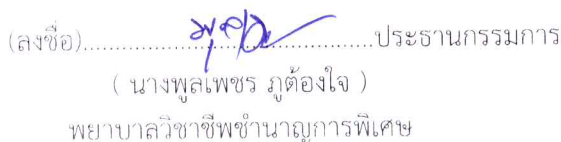 (ลงชื่อ)......................................................ประธานกรรมการ
( นางพูลเพชร ภูต้องใจ )
พยาบาลวิชาชีพชำนาญการพิเศษ